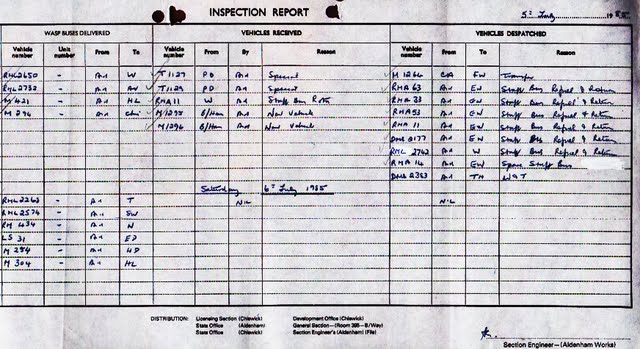 INSPECTION REPORT
5th July 1985
WASP BUSES DELIVERED VEHICLES RECEIVED VEHICLES DESPATCHED
Vehicle number Unit number From To Vehicle number From By Reason Vehicle number From To Reason
RML2650 - An W T1127 PD An Special M 1266 FW Transfer
RML2732 - An T1129 PD An Special RMA 63 An EW Staff Bus Refuel & Return
M 421 - An HL RMA11 W An Staff Bus RMA 33 An GW Staff Bus Refuel & Return
M 294 - An M1295 B/Ham An New Vehicle RMA 53 An GW Staff Bus Refuel & Return
M1296 B/Ham An New Vehicle RMA 11 An GW Staff Bus Refuel & Return
An EW Staff Bus Refuel & Return
RML 2742 An W Staff Bus Refuel & Return
RMA 14 An EW Spare Staff Bus
DMS 2383 An TH
Saturday 6th July 1985
RML2263 - An T NIL NIL
RML2574 - An SW
RM 434 - An N
LS 31 - An ED
M 254 - An
M 304 - An HL
DISTRIBUTION: Licensing Section (Chiswick) Development Office (Chiswick)
State Office (Aldenham) General Section—(Room 395—B/Way)
State Office (Chiswick) Section Engineer's (Aldenham) (File)
Section Engineer—(Aldenham Works)